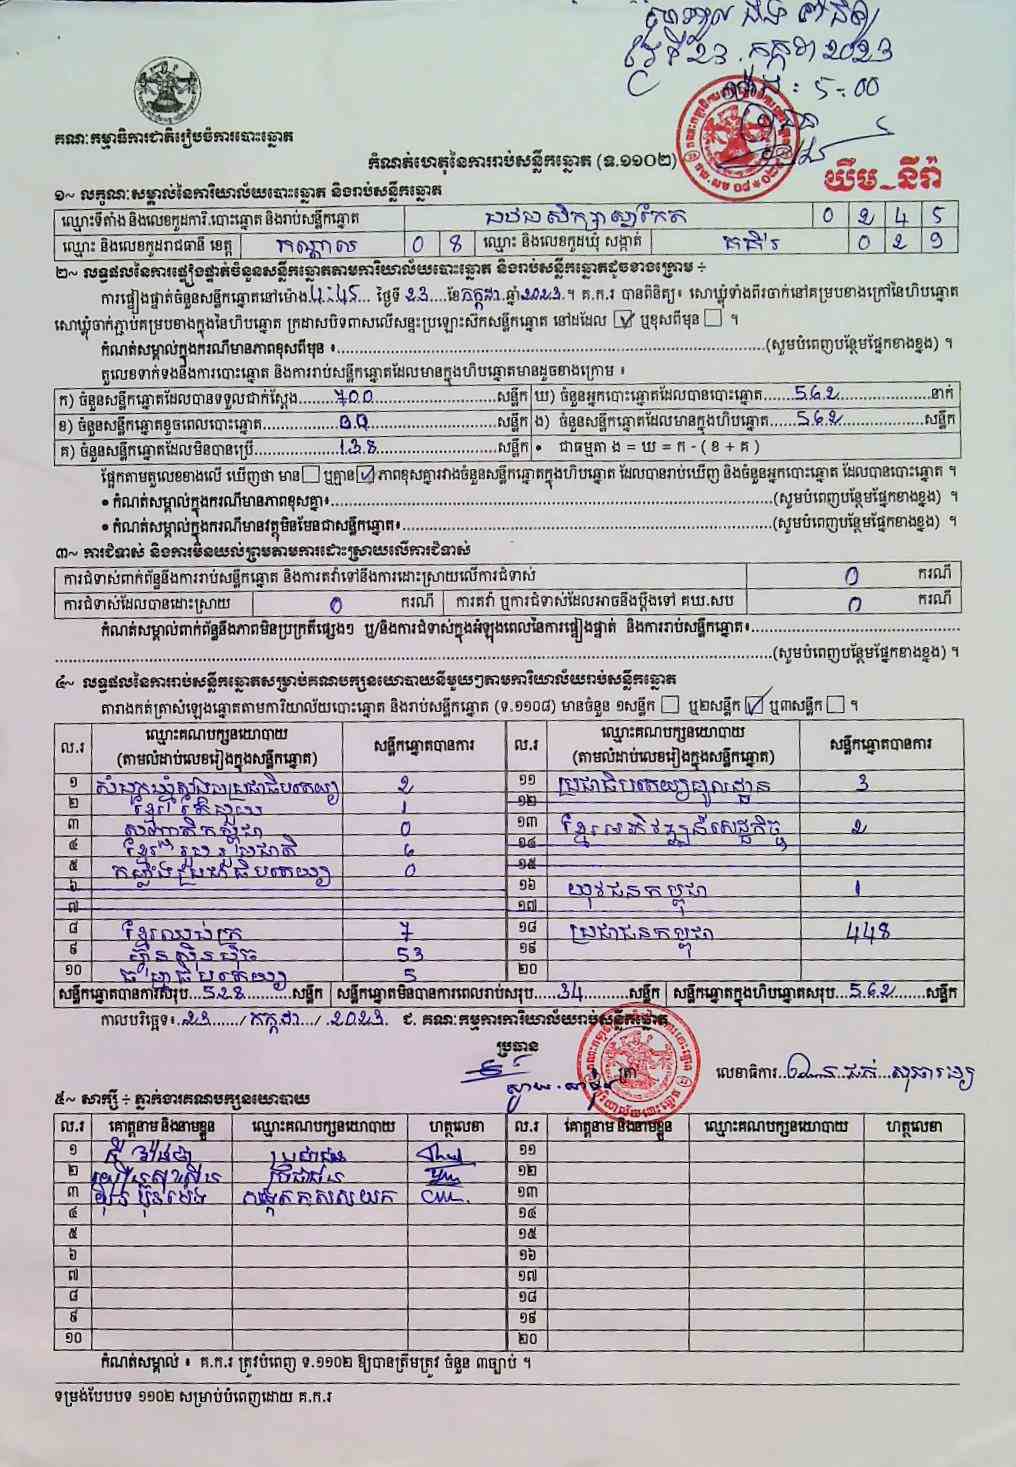 ថ្ងៃទី 23 . កក្កដា 2023
ម៉ោង : 5-:00
គណៈកម្មាធិការជាតិរៀបចំការបោះឆ្នោត
កំណត់ហេតុនៃការរាប់សន្លឹកឆ្នោត (ទ.១១០២)
ឃឹម_នីរ៉ា
១~ លក្ខណៈសម្គាល់នៃការិយាល័យបោះឆ្នោត និងរាប់សន្លឹកឆ្នោត
ឈ្មោះទីតាំង និងលេខកូដការិ.បោះឆ្នោត និងរាប់សន្លឹកឆ្នោត 0 2 4 5
ឈ្មោះ និងលេខកូដរាជធានី ខេត្ត កណ្តាល 0 8 ឈ្មោះ និងលេខកូដឃុំ សង្កាត់ 0 2 9
២~ លទ្ធផលនៃការផ្ទៀងផ្ទាត់ចំនួនសន្លឹកឆ្នោតតាមការិយាល័យបោះឆ្នោត និងរាប់សន្លឹកឆ្នោតដូចខាងក្រោម ÷
ការផ្ទៀងផ្ទាត់ចំនួនសន្លឹកឆ្នោតនៅម៉ោង 4:45 ថ្ងៃទី 23 ខែ កក្កដា ឆ្នាំ 2023 ។ គ.ក.រ បានពិនិត្យ៖ សោឃ្លុំទាំងពីរចាក់នៅគម្របខាងក្រៅនៃហិបឆ្នោត
សោឃ្លុំចាក់ភ្ជាប់គម្របខាងក្នុងនៃហិបឆ្នោត ក្រដាសបិទពាសលើសន្ទះប្រឡោះសឹកសន្លឹកឆ្នោត នៅដដែល ☑ ឬខុសពីមុន ☐ ។
កំណត់សម្គាល់ក្នុងករណីមានភាពខុសពីមុន ៖ (សូមបំពេញបន្ថែមផ្នែកខាងខ្នង) ។
តួលេខទាក់ទងនឹងការបោះឆ្នោត និងការរាប់សន្លឹកឆ្នោតដែលមានក្នុងហិបឆ្នោតមានដូចខាងក្រោម ៖
ក) ចំនួនសន្លឹកឆ្នោតដែលបានទទួលជាក់ស្តែង 700 សន្លឹក ឃ) ចំនួនអ្នកបោះឆ្នោតដែលបានបោះឆ្នោត 562 នាក់
ខ) ចំនួនសន្លឹកឆ្នោតខូចពេលបោះឆ្នោត 00 សន្លឹក ង) ចំនួនសន្លឹកឆ្នោតដែលមានក្នុងហិបឆ្នោត 562 សន្លឹក
គ) ចំនួនសន្លឹកឆ្នោតដែលមិនបានប្រើ 138 សន្លឹក • ជាធម្មតា ង = ឃ = ក - ( ខ + គ )
ផ្អែកតាមតួលេខខាងលើ ឃើញថា មាន ☐ ឬគ្មាន ☑ ភាពខុសគ្នារវាងចំនួនសន្លឹកឆ្នោតក្នុងហិបឆ្នោត ដែលបានរាប់ឃើញ និងចំនួនអ្នកបោះឆ្នោត ដែលបានបោះឆ្នោត ។
• កំណត់សម្គាល់ក្នុងករណីមានភាពខុសគ្នា៖ (សូមបំពេញបន្ថែមផ្នែកខាងខ្នង) ។
• កំណត់សម្គាល់ក្នុងករណីមានវត្ថុមិនមែនជាសន្លឹកឆ្នោត៖ (សូមបំពេញបន្ថែមផ្នែកខាងខ្នង) ។
៣~ ការជំទាស់ និងការមិនយល់ព្រមតាមការដោះស្រាយលើការជំទាស់
ការជំទាស់ពាក់ព័ន្ធនឹងការរាប់សន្លឹកឆ្នោត និងការតវ៉ាទៅនឹងការដោះស្រាយលើការជំទាស់ 0 ករណី
ការជំទាស់ដែលបានដោះស្រាយ 0 ករណី ការតវ៉ា ឬការជំទាស់ដែលអាចនឹងប្តឹងទៅ គឃ.សប 0 ករណី
កំណត់សម្គាល់ពាក់ព័ន្ធនឹងភាពមិនប្រក្រតីផ្សេងៗ ឬ/និងការជំទាស់ក្នុងអំឡុងពេលនៃការផ្ទៀងផ្ទាត់ និងការរាប់សន្លឹកឆ្នោត៖
(សូមបំពេញបន្ថែមផ្នែកខាងខ្នង) ។
៤~ លទ្ធផលនៃការរាប់សន្លឹកឆ្នោតសម្រាប់គណបក្សនយោបាយនីមួយៗតាមការិយាល័យរាប់សន្លឹកឆ្នោត
តារាងកត់ត្រាសំឡេងឆ្នោតតាមការិយាល័យបោះឆ្នោត និងរាប់សន្លឹកឆ្នោត (ទ.១១០៨) មានចំនួន ១សន្លឹក ☐ ឬ២សន្លឹក ☑ ឬ៣សន្លឹក ☐ ។
ល.រ ឈ្មោះគណបក្សនយោបាយ (តាមលំដាប់លេខរៀងក្នុងសន្លឹកឆ្នោត) សន្លឹកឆ្នោតបានការ ល.រ ឈ្មោះគណបក្សនយោបាយ (តាមលំដាប់លេខរៀងក្នុងសន្លឹកឆ្នោត) សន្លឹកឆ្នោតបានការ
១ សំបុកឃ្មុំសង្គមប្រជាធិបតេយ្យ 2 ១១ ប្រជាធិបតេយ្យមូលដ្ឋាន 3
២ 1 ១២
៣ 0 ១៣ ខ្មែរអភិវឌ្ឍន៍សេដ្ឋកិច្ច 2
៤ ខ្មែររួបរួមជាតិ 6 ១៤
៥ កម្លាំងប្រជាធិបតេយ្យ 0 ១៥
៦ ១៦ យុវជនកម្ពុជា 1
៧ ១៧
៨ ខ្មែរឈប់ក្រ 7 ១៨ ប្រជាជនកម្ពុជា 448
៩ ហ្វ៊ុនស៊ិនប៉ិច 53 ១៩
១០ ធម្មាធិបតេយ្យ 5 ២០
សន្លឹកឆ្នោតបានការសរុប 528 សន្លឹក សន្លឹកឆ្នោតមិនបានការពេលរាប់សរុប 34 សន្លឹក សន្លឹកឆ្នោតក្នុងហិបឆ្នោតសរុប 562 សន្លឹក
កាលបរិច្ឆេទ៖ 23 / កក្កដា / 2023. ជ. គណៈកម្មការការិយាល័យរាប់សន្លឹកឆ្នោត
ប្រធាន
ត្រា លេខាធិការ
៥~ សាក្សី ÷ ភ្នាក់ងារគណបក្សនយោបាយ
ល.រ គោត្តនាម និងនាមខ្លួន ឈ្មោះគណបក្សនយោបាយ ហត្ថលេខា ល.រ គោត្តនាម និងនាមខ្លួន ឈ្មោះគណបក្សនយោបាយ ហត្ថលេខា
១ ប្រជាជន ១១
២ ប្រជាជន ១២
៣ ១៣
៤ ១៤
៥ ១៥
៦ ១៦
៧ ១៧
៨ ១៨
៩ ១៩
១០ ២០
កំណត់សម្គាល់ ៖ គ.ក.រ ត្រូវបំពេញ ទ.១១០២ ឱ្យបានត្រឹមត្រូវ ចំនួន ៣ច្បាប់ ។
ទម្រង់បែបបទ ១១០២ សម្រាប់បំពេញដោយ គ.ក.រ